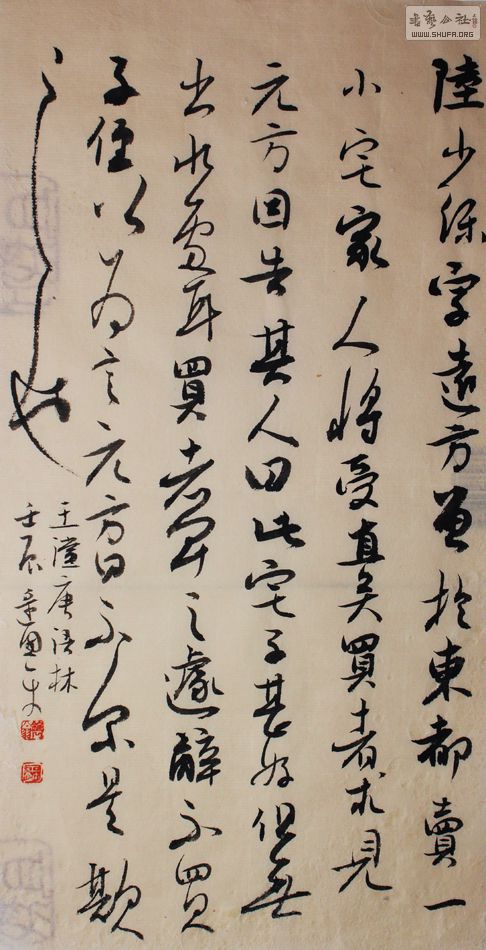 書藝公社
WWW.SHUFA.ORG
陸少保字遠方曾於東都賣一
小宅家人將受直矣買者求見
元方因告其人曰此宅子甚好但無
出水處耳買者聞之遽辭不買
子侄以為言元方曰不爾是欺
之也
王讜唐語林
壬辰